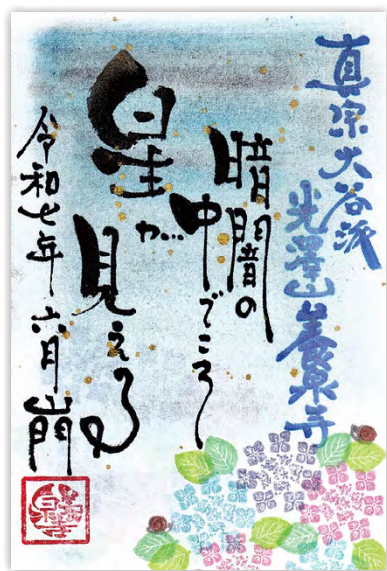 真宗大谷派
光澤山 養泉寺
暗闇の
中でこそ
星が
見える
令和七年 六月 山門
養泉寺